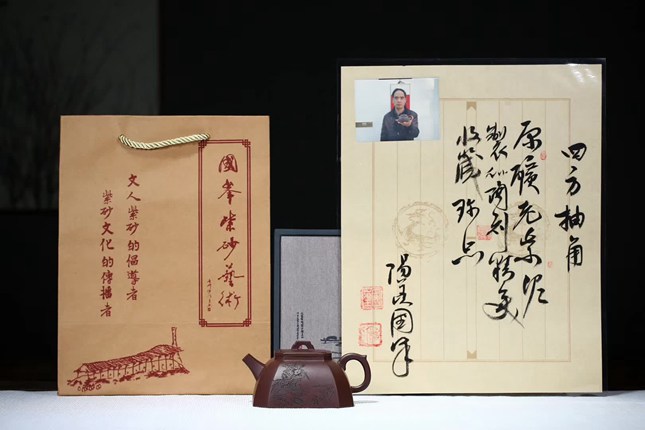 國峯紫砂藝術
文人紫砂的倡導者
紫砂文化的傳播者
四方抽角
原礦老紫泥
製作陶刻精美
收藏珍品
陽羨國峯